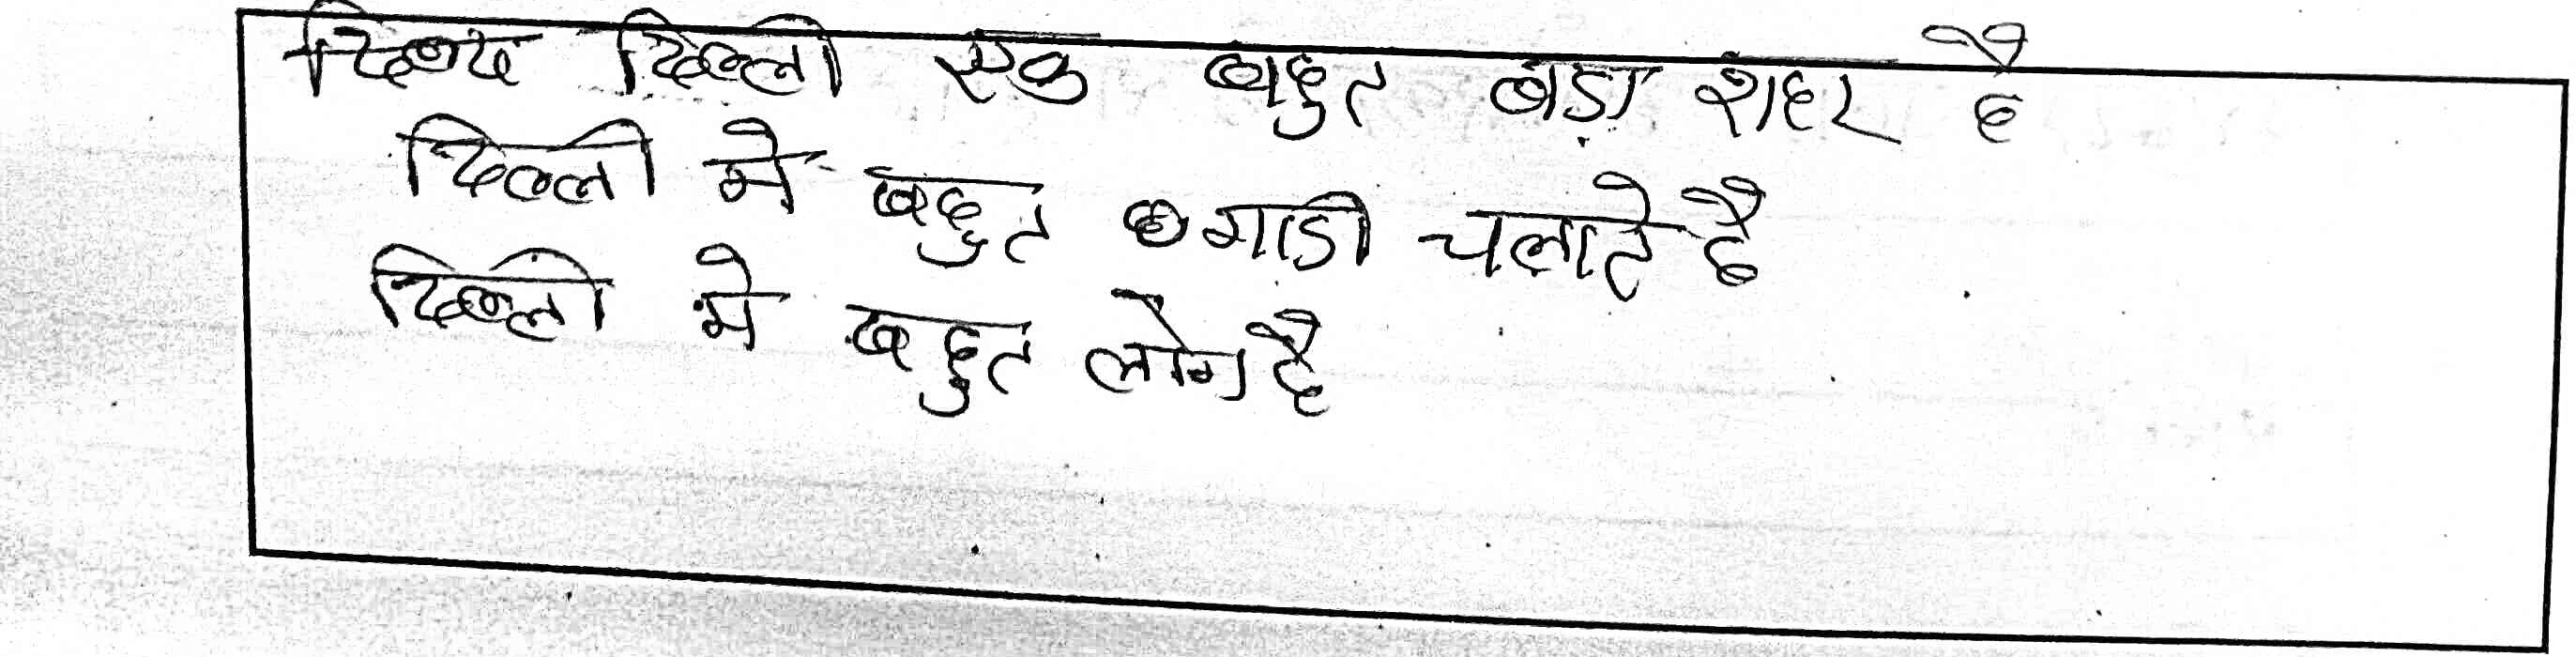 दिल्ली एक बहुत बड़ा शहर है
दिल्ली मे बहुत गाडी चलाते है
दिल्ली मे बहुत लोग है